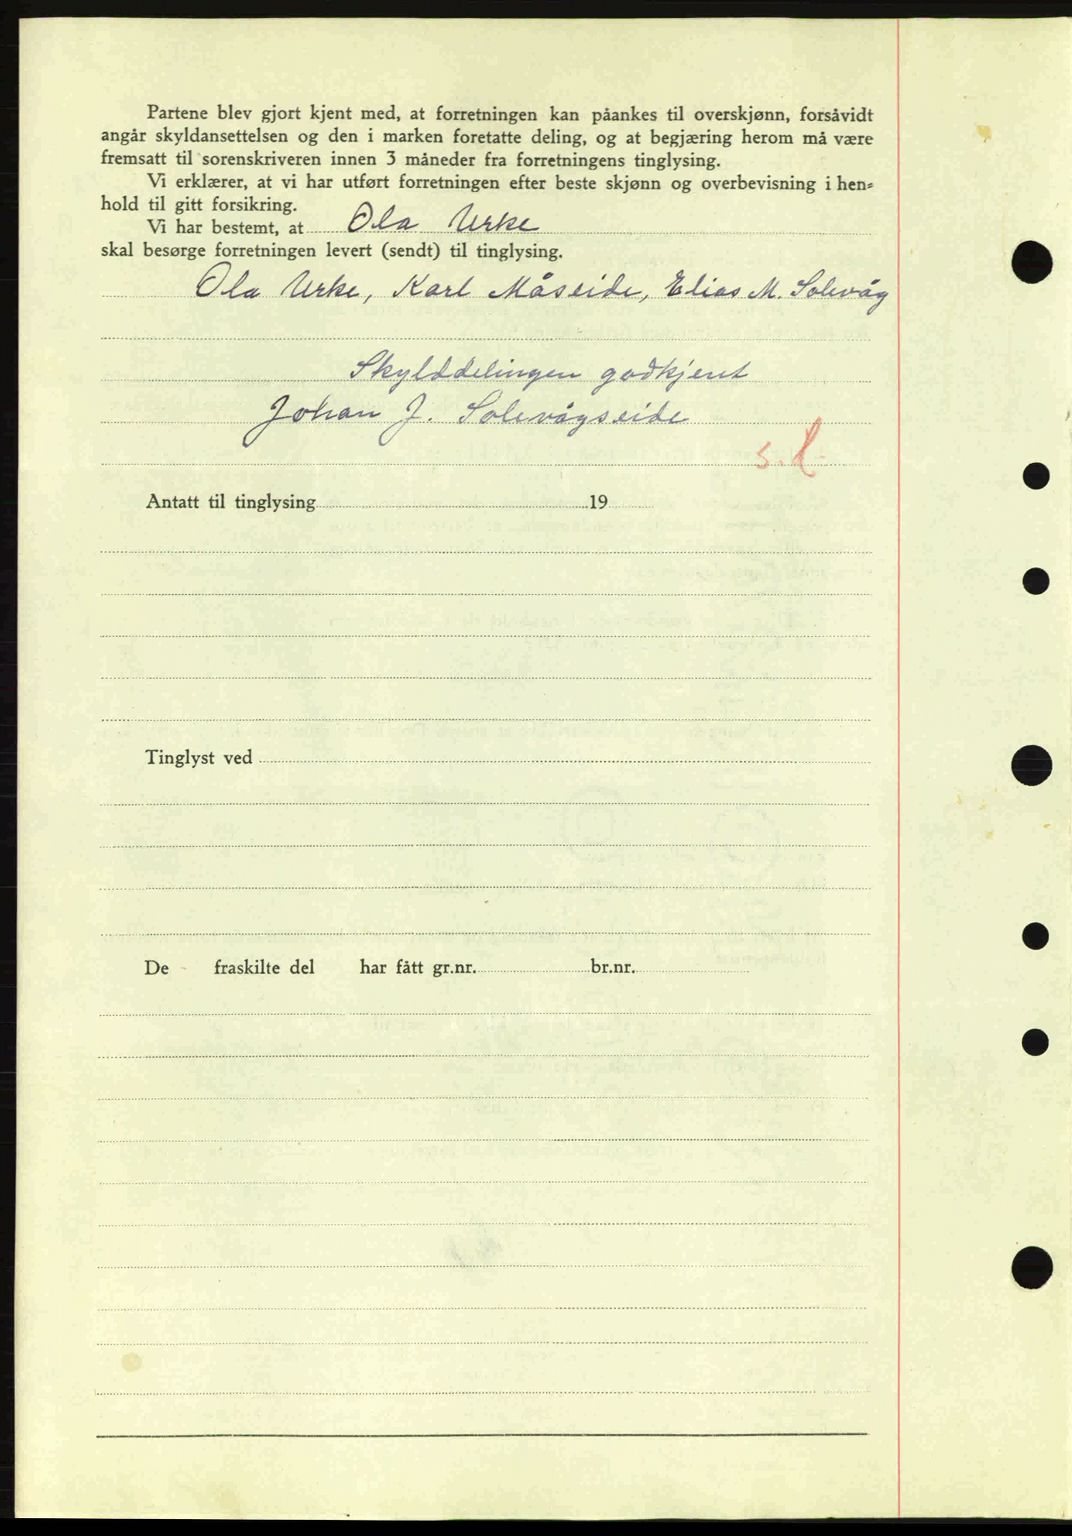 Partene blev gjort kjent med, at forretningen kan påankes til overskjønn, forsåvidt
angår skyldansettelsen og den i marken foretatte deling, og at begjæring herom må være
fremsatt til sorenskriveren innen 3 måneder fra forretningens tinglysing.
Vi erklærer, at vi har utført forretningen efter beste skjønn og overbevisning i hen=
hold til gitt forsikring.
Vi har bestemt, at Ola Urke
skal besørge forretningen levert (sendt) til tinglysing.
Ola Urke, Karl Måseide, Elias M. Solevåg
Skylddelingen godkjent
Johan J. Solevågseide
s. l.
Antatt til tinglysing 19
Tinglyst ved
De fraskilte del har fått gr.nr. br.nr.